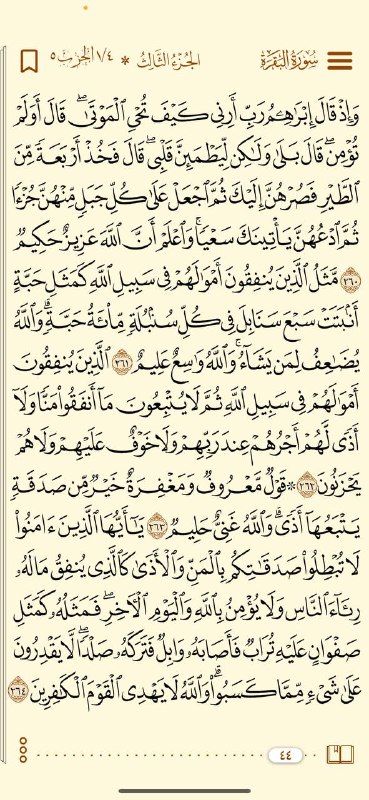 سُورَةُ البَقَرَةِ الجُزْءُ الثَّالِثُ * ١/٤ الحِزْب ٥
وَإِذْ قَالَ إِبْرَٰهِـۧمُ رَبِّ أَرِنِى كَيْفَ تُحْىِ ٱلْمَوْتَىٰ ۖ قَالَ أَوَلَمْ
تُؤْمِن ۖ قَالَ بَلَىٰ وَلَـٰكِن لِّيَطْمَئِنَّ قَلْبِى ۖ قَالَ فَخُذْ أَرْبَعَةً مِّنَ
ٱلطَّيْرِ فَصُرْهُنَّ إِلَيْكَ ثُمَّ ٱجْعَلْ عَلَىٰ كُلِّ جَبَلٍ مِّنْهُنَّ جُزْءًا
ثُمَّ ٱدْعُهُنَّ يَأْتِينَكَ سَعْيًا ۚ وَٱعْلَمْ أَنَّ ٱللَّهَ عَزِيزٌ حَكِيمٌ
٢٦٠ مَّثَلُ ٱلَّذِينَ يُنفِقُونَ أَمْوَٰلَهُمْ فِى سَبِيلِ ٱللَّهِ كَمَثَلِ حَبَّةٍ
أَنۢبَتَتْ سَبْعَ سَنَابِلَ فِى كُلِّ سُنۢبُلَةٍ مِّا۟ئَةُ حَبَّةٍ ۗ وَٱللَّهُ
يُضَـٰعِفُ لِمَن يَشَآءُ ۗ وَٱللَّهُ وَٰسِعٌ عَلِيمٌ ٢٦١ ٱلَّذِينَ يُنفِقُونَ
أَمْوَٰلَهُمْ فِى سَبِيلِ ٱللَّهِ ثُمَّ لَا يُتْبِعُونَ مَآ أَنفَقُوا۟ مَنًّا وَلَآ
أَذًى ۙ لَّهُمْ أَجْرُهُمْ عِندَ رَبِّهِمْ وَلَا خَوْفٌ عَلَيْهِمْ وَلَا هُمْ
يَحْزَنُونَ ٢٦٢ * قَوْلٌ مَّعْرُوفٌ وَمَغْفِرَةٌ خَيْرٌ مِّن صَدَقَةٍ
يَتْبَعُهَآ أَذًى ۗ وَٱللَّهُ غَنِىٌّ حَلِيمٌ ٢٦٣ يَـٰٓأَيُّهَا ٱلَّذِينَ ءَامَنُوا۟
لَا تُبْطِلُوا۟ صَدَقَـٰتِكُم بِٱلْمَنِّ وَٱلْأَذَىٰ كَٱلَّذِى يُنفِقُ مَالَهُۥ
رِئَآءَ ٱلنَّاسِ وَلَا يُؤْمِنُ بِٱللَّهِ وَٱلْيَوْمِ ٱلْـَٔاخِرِ ۖ فَمَثَلُهُۥ كَمَثَلِ
صَفْوَانٍ عَلَيْهِ تُرَابٌ فَأَصَابَهُۥ وَابِلٌ فَتَرَكَهُۥ صَلْدًا ۖ لَّا يَقْدِرُونَ
عَلَىٰ شَىْءٍ مِّمَّا كَسَبُوا۟ ۗ وَٱللَّهُ لَا يَهْدِى ٱلْقَوْمَ ٱلْكَـٰفِرِينَ ٢٦٤
٤٤